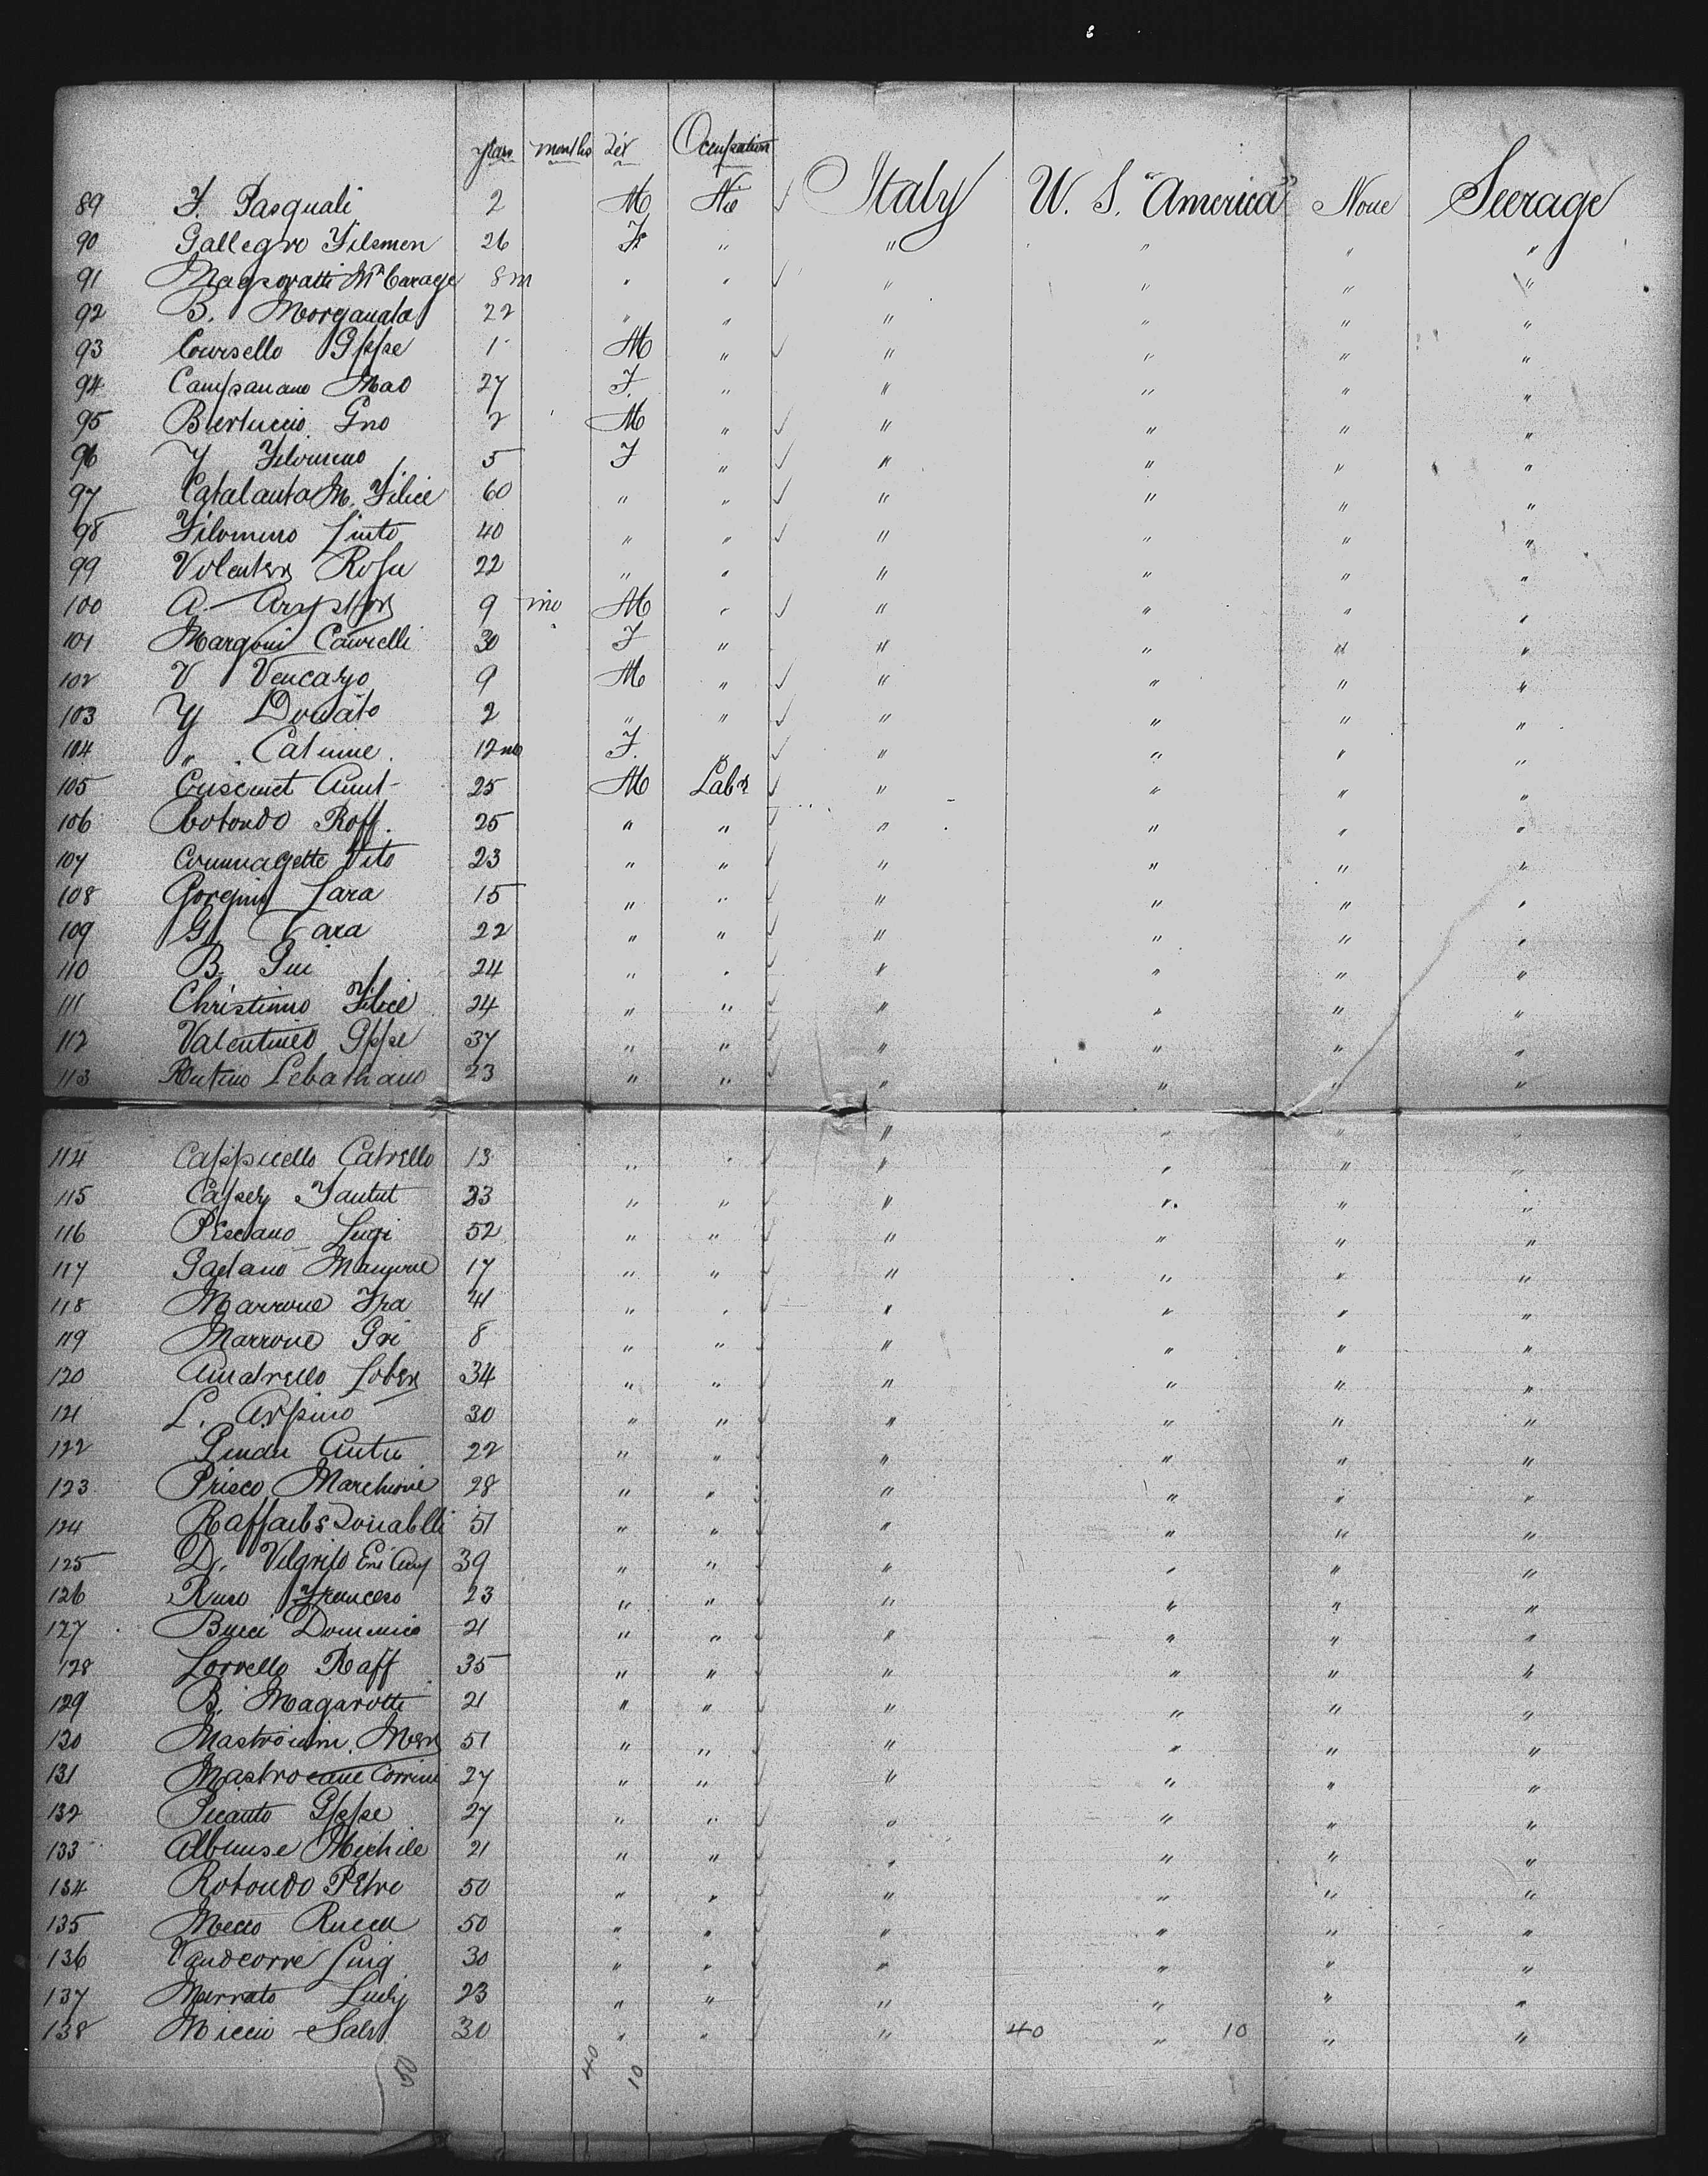 years months Sex Occupation
89 F. Pasquali 2 M Nie ✓ Italy U. S. "America" None Steerage
90 Gallegro Filemen 26 F " " " " "
91 8 m " " ✓ " " " "
92 B. Morganata 22 " " " " " "
93 Coursello Gppe 1 M " ✓ " " " "
94 Campanano Mao 27 F " " " " "
95 Bertuccio Gno 2 M " ✓ " " " "
96 Y Filomeno 5 F " ✓ " " " "
97 Catalanta M. Filice 60 " " ✓ " " " "
98 Filomeno Sinto 40 " " ✓ " " " "
99 Volenter Rosa 22 " " " " " "
100 A. 9 mo M " ✓ " " " "
101 Margoni Caurelli 30 F " " " " "
102 V Vencazo 9 M " ✓ " " " "
103 Y Donato 2 " " ✓ " " " "
104 " Catuine 12 mo F " ✓ " " " "
105 Cuscinet Aunt 25 M Labr ✓ " " " "
106 Cotondo Raff. 25 " " ✓ " " " "
107 Vito 23 " " ✓ " " " "
108 Sara 15 " " ✓ " " " "
109 G Cara 22 " " ✓ " " " "
110 B. Gui 24 " " ✓ " " " "
111 Christinno Filice 24 " " ✓ " " " "
112 Valentineo Gppe 37 " " ✓ " " " "
113 Rutino Lebathano 23 " " ✓ " " " "
114 Cappuello Catrello 13 " " ✓ " " " "
115 Casper Yantut 23 " " ✓ " " " "
116 Pesclano Luigi 52 " " ✓ " " " "
117 Gaetano 17 " " ✓ " " " "
118 Marrone Fra 41 " " ✓ " " " "
119 Marrone Gri 8 " " ✓ " " " "
120 Amatrello Sober 34 " " ✓ " " " "
121 L. Arpino 30 " " ✓ " " " "
122 Antu 22 " " ✓ " " " "
123 Prisco Marchione 28 " " " " " "
124 Donabelli 51 " " ✓ " " " "
125 D. Velgrito 39 " " ✓ " " " "
126 Ruso Francesco 23 " " ✓ " " " "
127 Bucci Dominico 21 " " ✓ " " " "
128 Lorvello Raff 35 " " ✓ " " " "
129 B. Magarotti 21 " " ✓ " " " "
130 Mastroianni 51 " " ✓ " " " "
131 Mastrocane Corrini 27 " " ✓ " " " "
132 Picanto Gppe 27 " " ✓ " " " "
133 Albunse Michile 21 " " ✓ " " " "
134 Rotondo Petro 50 " " ✓ " " " "
135 Mecco Rucca 50 " " ✓ " " " "
136 Vandcorre Luig 30 " " ✓ " " " "
137 Marrato 23 " " ✓ " " " "
138 Miccio Salv 30 " " ✓ " 40 " 10 " "
50 40 10